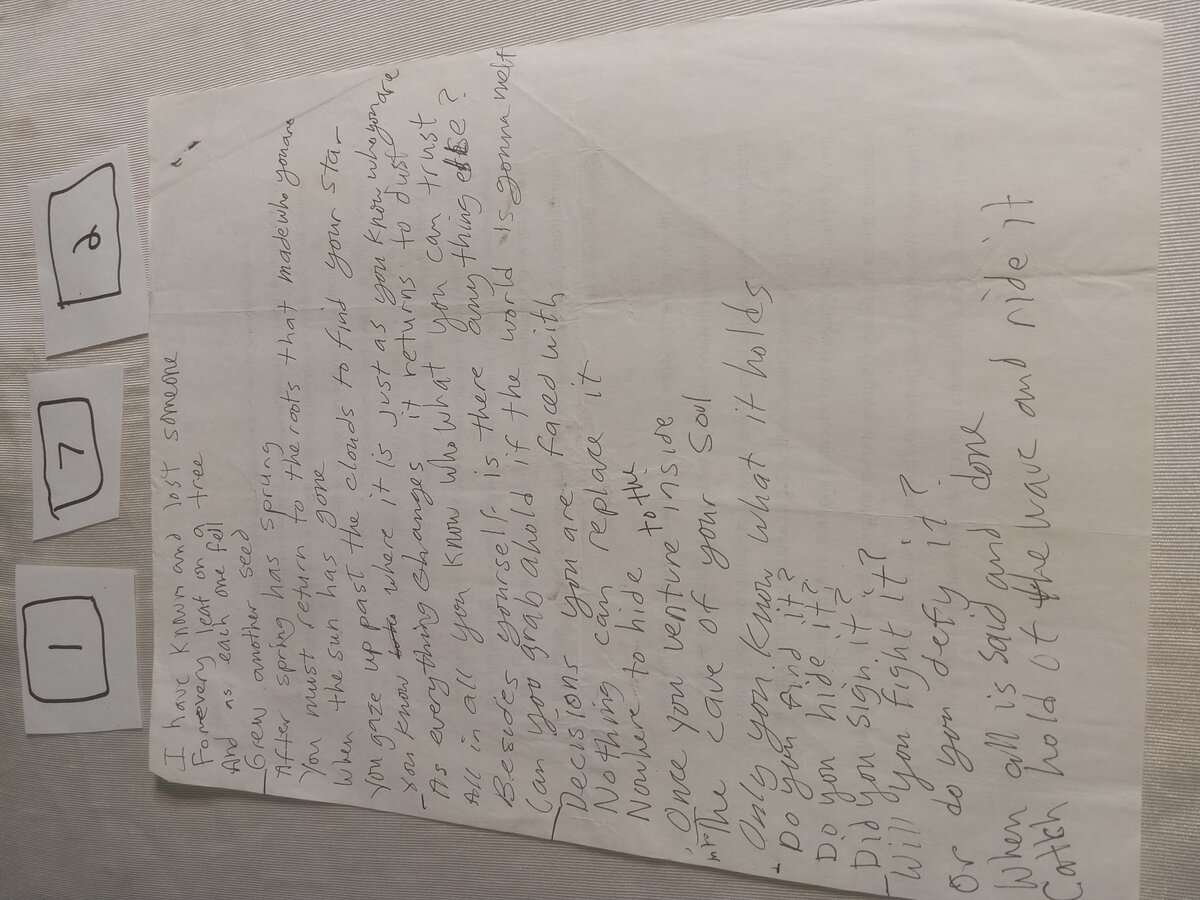 1 7 2
I have known and lost someone
For every leaf on a tree
And as each one fell
Grew another seed
After spring has sprung
You must return to the roots that made who you are
When the sun has gone
You gaze up past the clouds to find your sta-
- You know where it is just as you know who you are
- As everything changes it returns to dust
All in all you know who what you can trust
Besides yourself is there anything else?
Can you grab ahold if the world is gonna melt
Decisions you are faced with
Nothing can replace it
Nowhere to hide
Once you venture inside to the
into The cave of your soul
Only you know what it holds
- Do you find it?
Do you hide it?
Did you sign it?
Will you fight it?
Or do you defy it?
When all is said and done
Catch hold of the wave and ride it